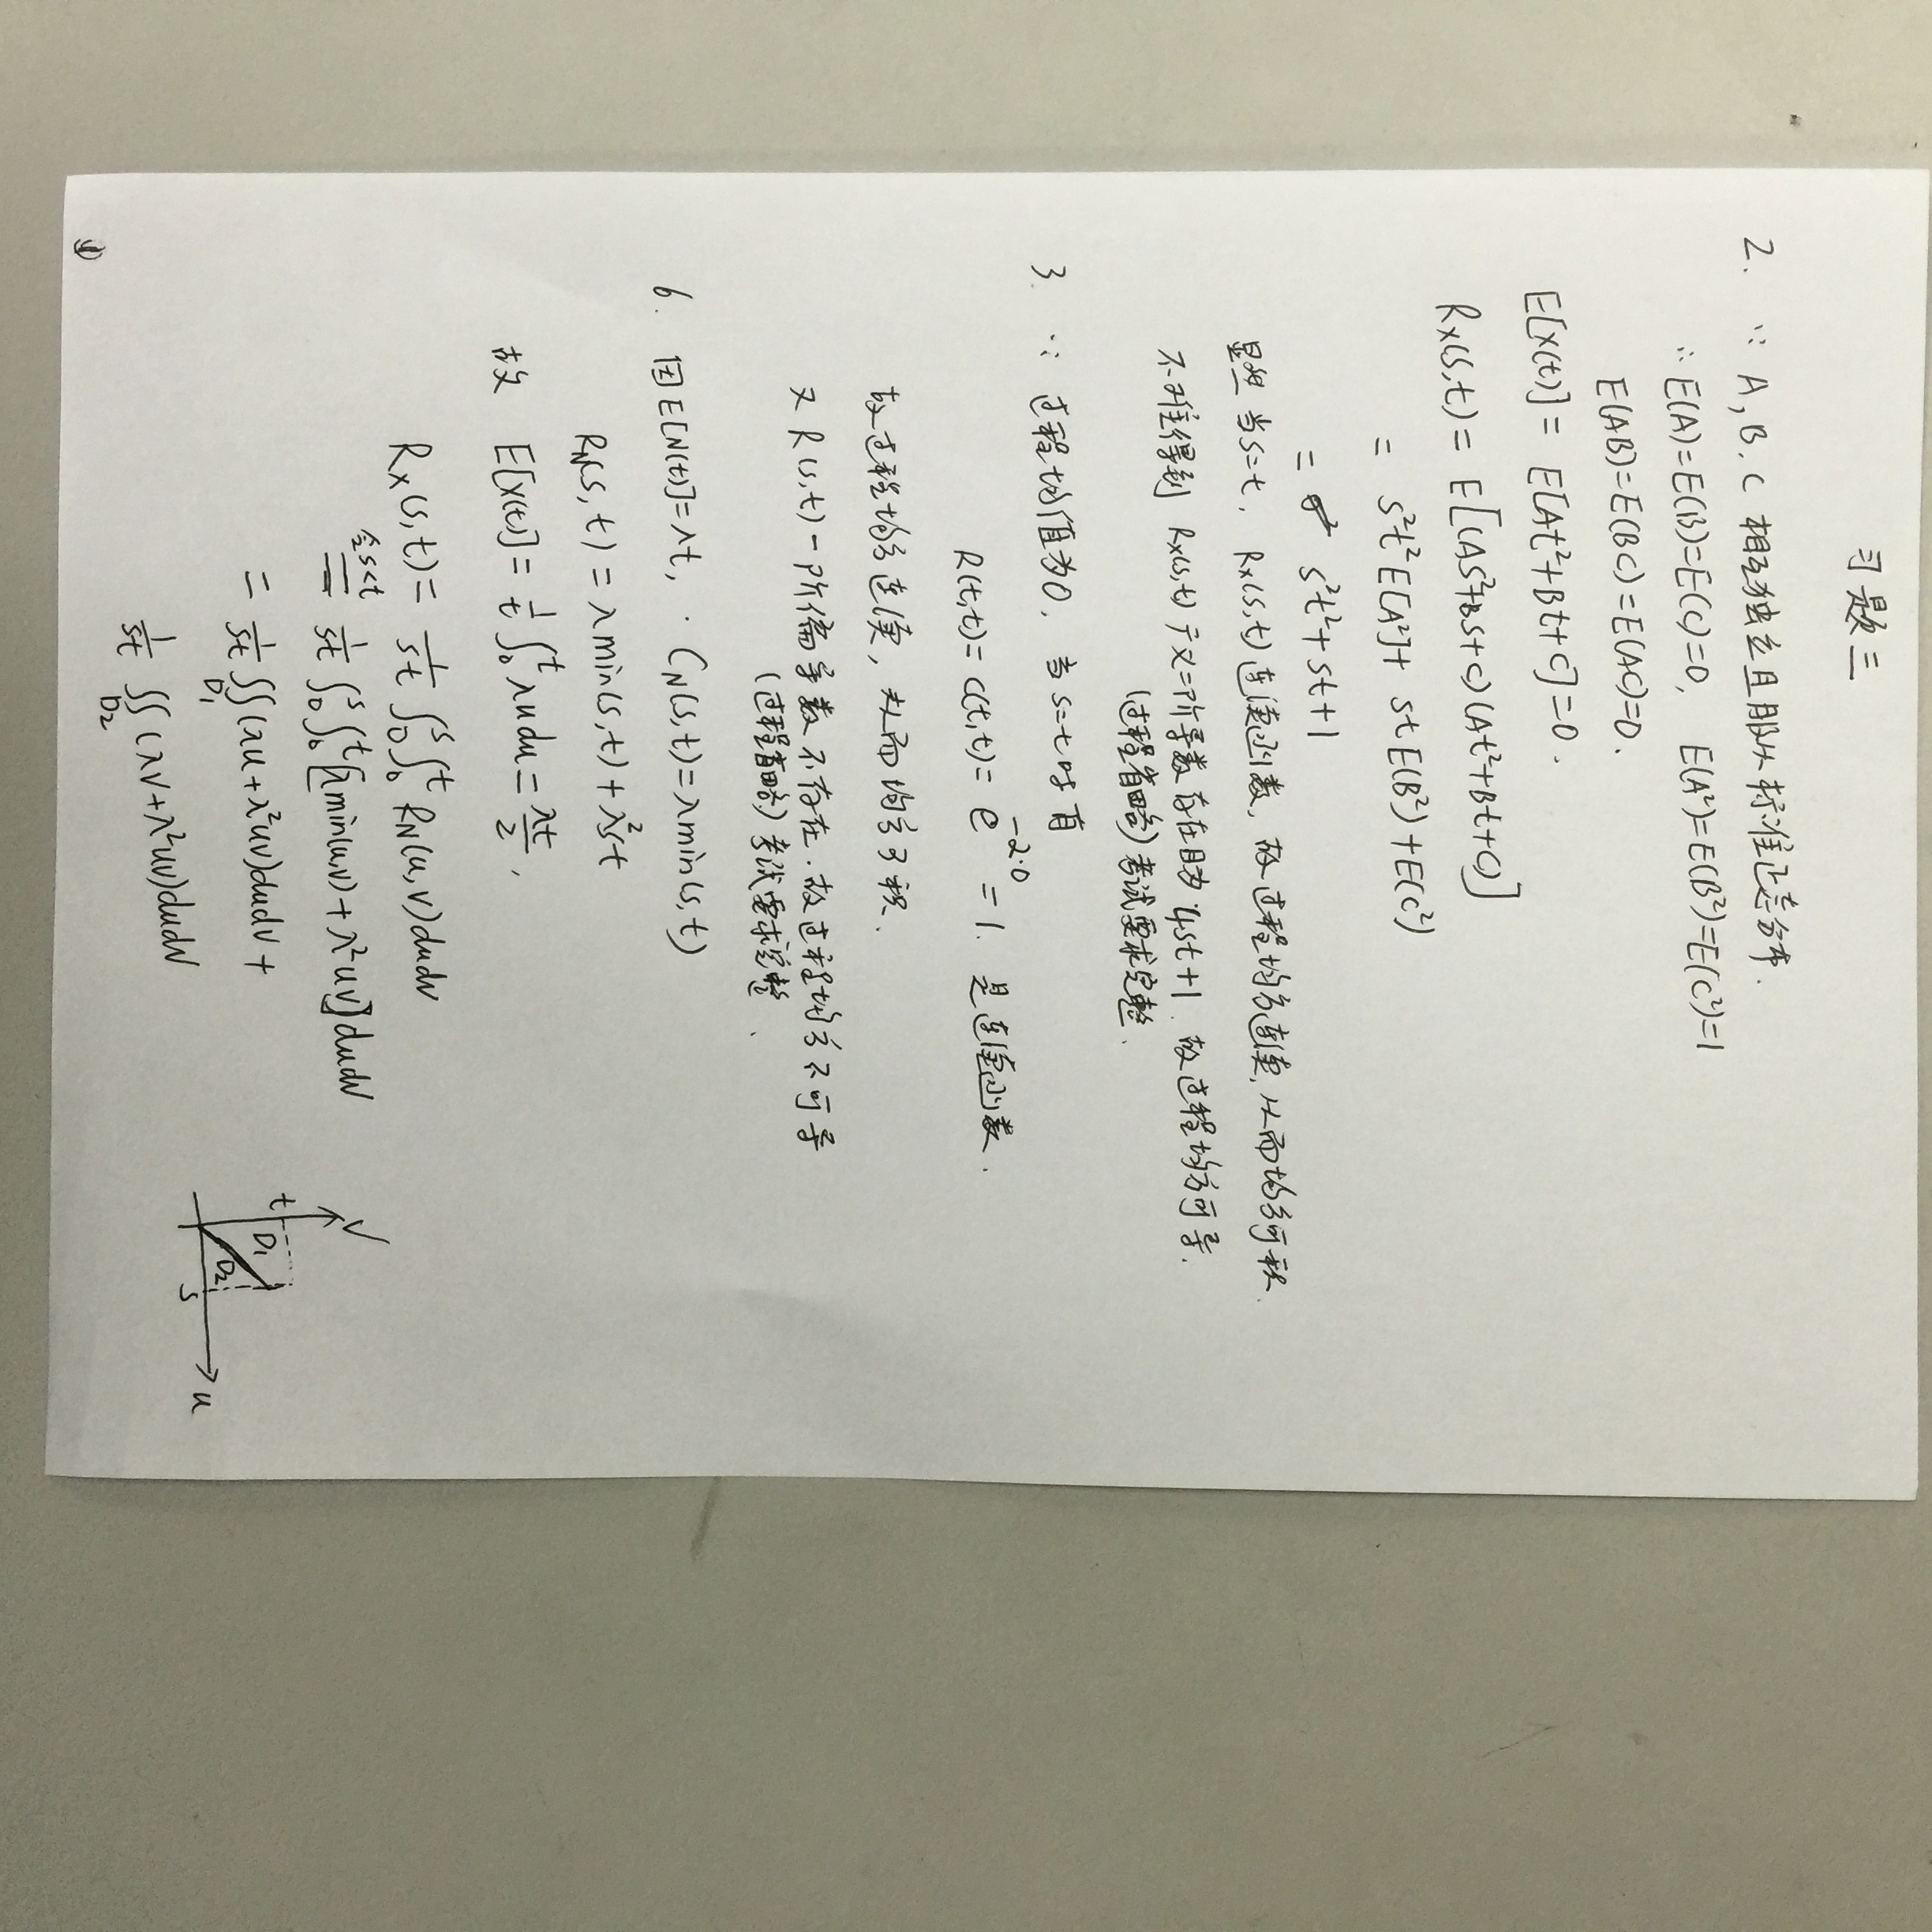 习题三
2. ∵ A, B, C 相互独立且服从标准正态分布.
∴ E(A)=E(B)=E(C)=0, E(A²)=E(B²)=E(C²)=1
E(AB)=E(BC)=E(AC)=0.
E[X(t)]= E[At²+Bt+C]=0.
Rx(s,t)= E[(As²+Bs+C)(At²+Bt+C)]
= s²t²E[A²]+ st E(B²)+E(C²)
= s²t²+st+1
显然当s=t, Rx(s,t)连续函数, 故过程均方连续, 从而均方可积.
不难得到 Rx(s,t)广义二阶导数存在且为 4st+1. 故过程均方可导.
(过程省略)考试要求完整.
3. ∵ 过程均值为0, 当s=t时有
R(t,t)=C(t,t)= e^{-2·0}=1. 是连续函数.
故过程均方连续, 从而均方可积.
又R(s,t)一阶偏导数不存在. 故过程均方不可导
(过程省略)考试要求完整.
6. 因E[N(t)]=λt, · C_N(s,t)=λmin(s,t)
R_N(s,t)=λmin(s,t)+λ²st
故 E[X(t)]= 1/t ∫₀ᵗ λu du = λt/2,
Rx(s,t)= 1/st ∫₀ˢ∫₀ᵗ R_N(u,v)dudv
令s<t = 1/st ∫₀ˢ∫₀ᵗ[λmin(u,v)+λ²uv]dudv
= 1/st ∬_{D₁}(λu+λ²uv)dudv+
1/st ∬_{D₂}(λv+λ²uv)dudv
V
t
D₁
D₂
s
u
①